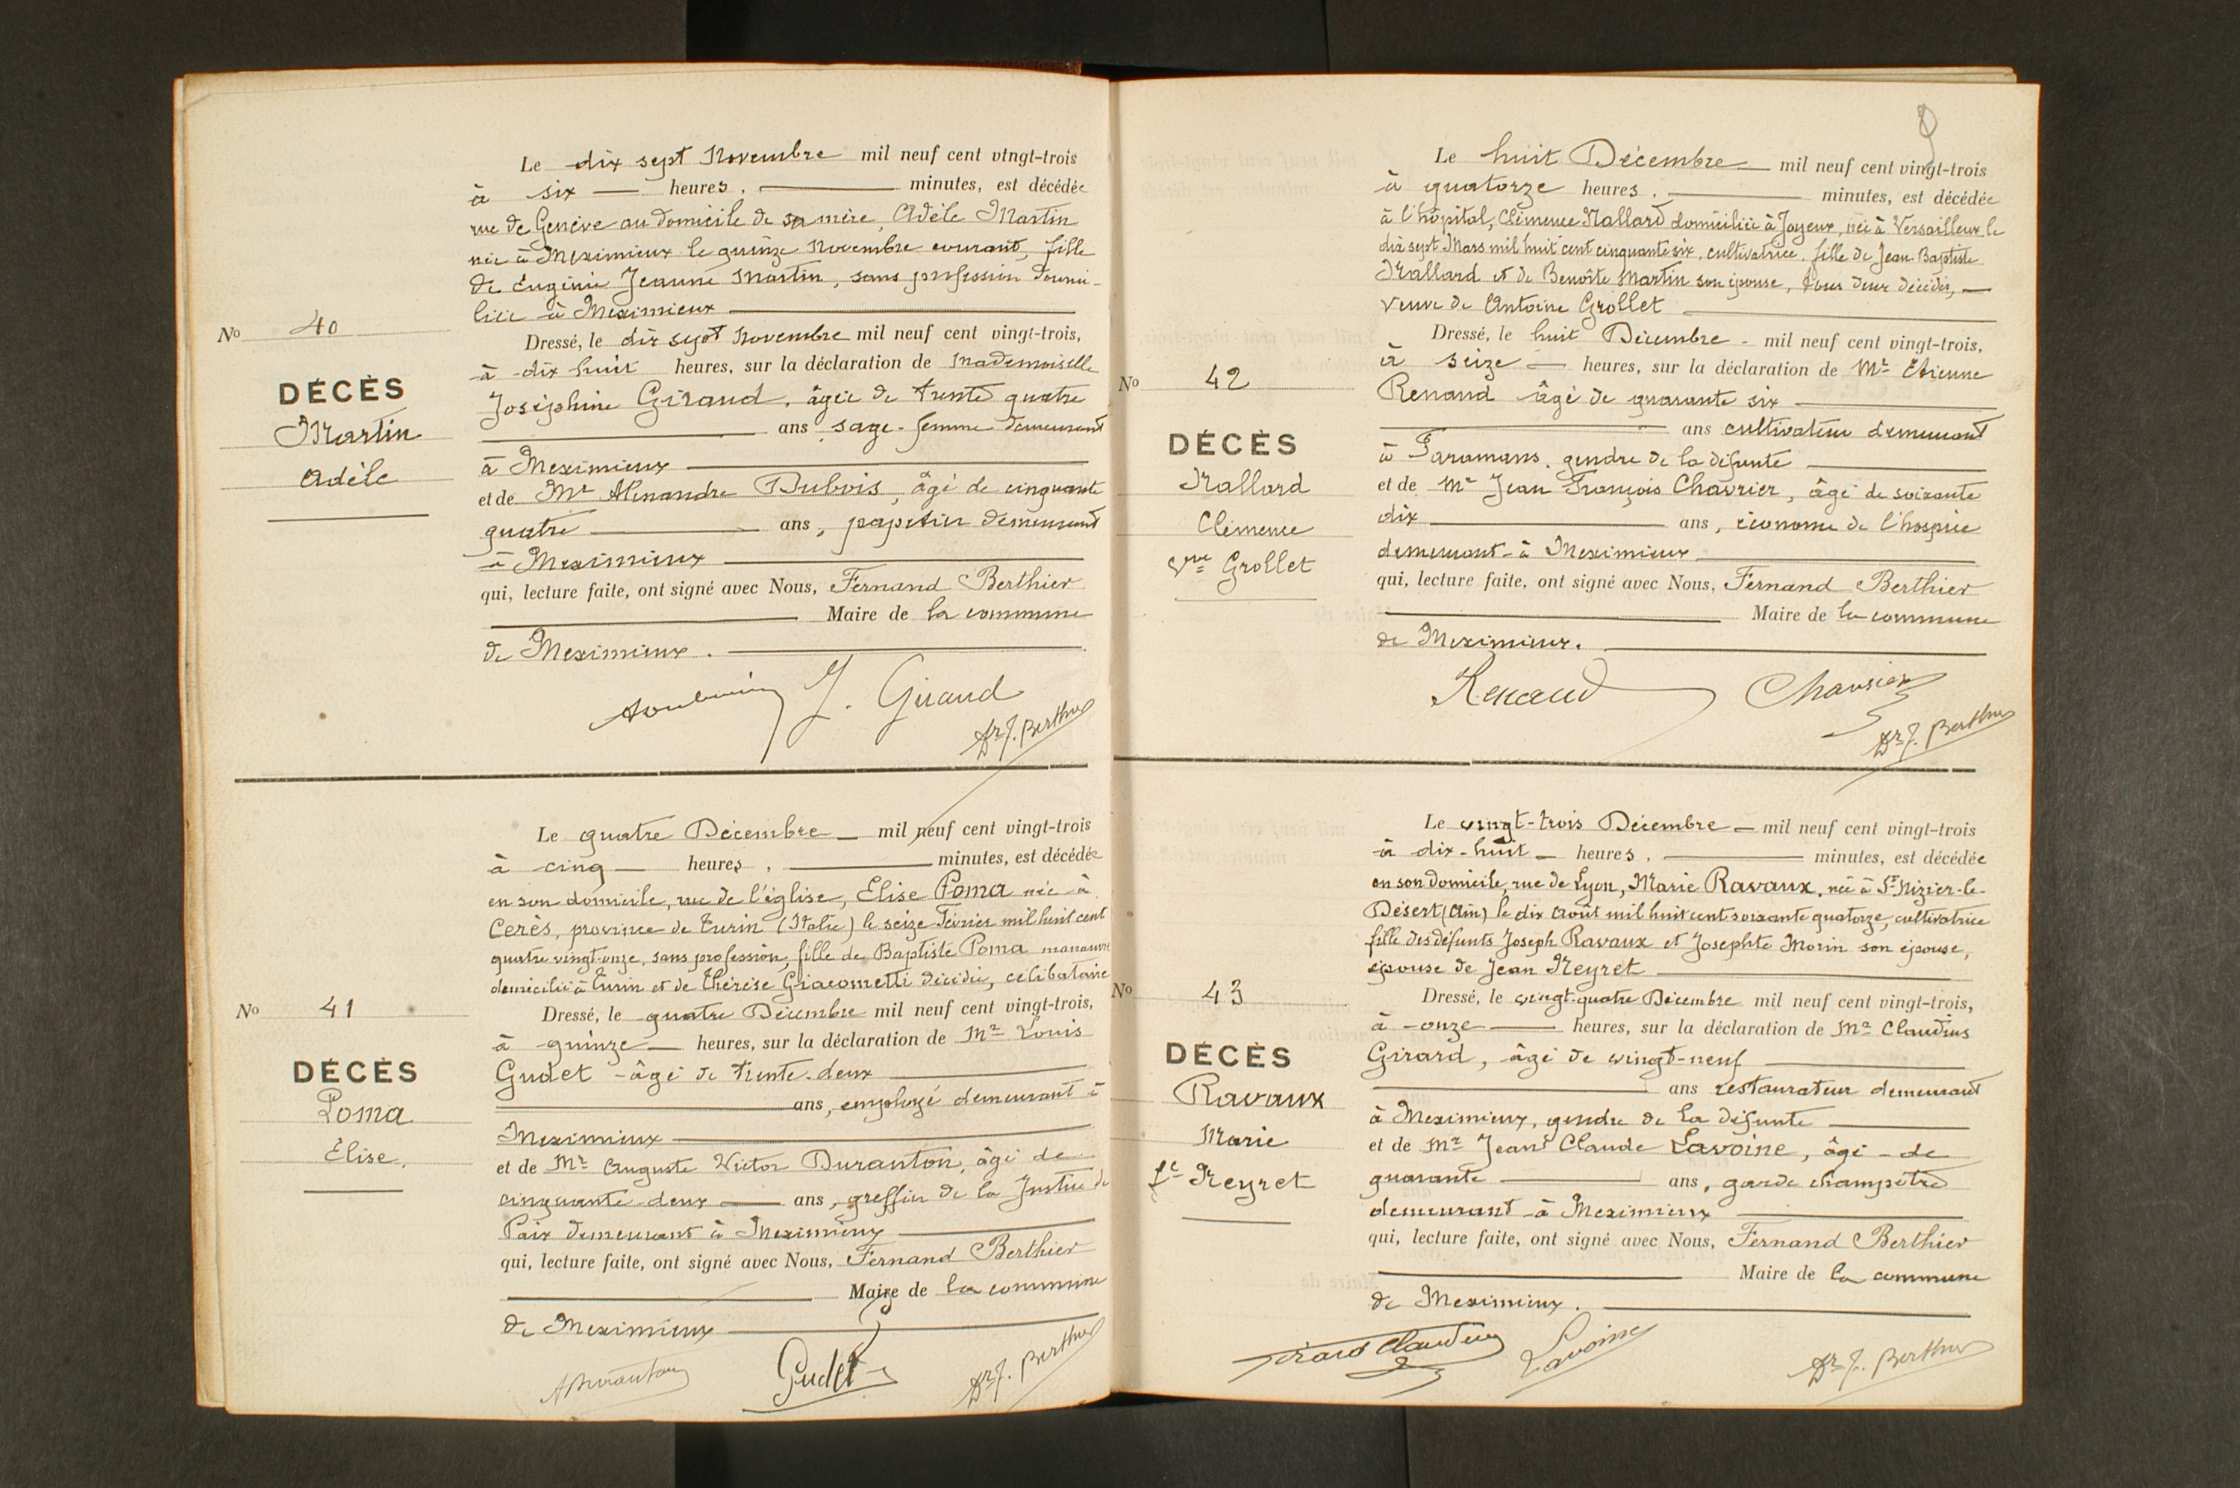 Le dix sept Novembre mil neuf cent vingt-trois
à six heures, minutes, est décédée
rue de Genève au domicile de sa mère, Adèle Martin
née à Meximieux le quinze Novembre courant, fille
de Eugénie Jeanne Martin, sans profession domici-
liée à Meximieux
No 40
Dressé, le dix sept Novembre mil neuf cent vingt-trois,
à dix huit heures, sur la déclaration de Mademoiselle
DÉCÈS
Joséphine Giraud, âgée de trente quatre
Martin
ans, sage-femme demeurant
à Meximieux
Adèle
et de Mr Alexandre Dubois, âgé de cinquante
quatre ans, papetier demeurant
à Meximieux
qui, lecture faite, ont signé avec Nous, Fernand Berthier
Maire de la commune
de Meximieux.
J. Giraud
Dr F. Berthier
Le quatre Décembre mil neuf cent vingt-trois
à cinq heures, minutes, est décédée
en son domicile, rue de l'église, Elise Poma née à
Cerès, province de Turin (Italie) le seize Février mil huit cent
quatre vingt-onze, sans profession, fille de Baptiste Poma manœuvre
domicilié à Turin et de Thérèse Giacometti décédée, célibataire
No 41
Dressé, le quatre Décembre mil neuf cent vingt-trois,
à quinze heures, sur la déclaration de Mr Louis
DÉCÈS
Gudet âgé de trente-deux
Poma
ans, employé demeurant à
Meximieux
Elise.
et de Mr Auguste Victor Duranton, âgé de
cinquante-deux ans, greffier de la Justice de
Paix demeurant à Meximieux
qui, lecture faite, ont signé avec Nous, Fernand Berthier
Maire de la commune
de Meximieux
ADuranton Gudet Dr F. Berthier
Le huit Décembre mil neuf cent vingt-trois
à quatorze heures, minutes, est décédée
à l'hôpital, Clémence Mallard domiciliée à Joyeux, née à Versailleux le
dix sept Mars mil huit cent cinquante six, cultivatrice, fille de Jean Baptiste
Mallard et de Benoîte Martin son épouse, tous deux décédés,
veuve de Antoine Grollet
Dressé, le huit Décembre mil neuf cent vingt-trois,
à seize heures, sur la déclaration de Mr Etienne
No 42
Renaud âgé de quarante six
ans cultivateur demeurant
DÉCÈS
à Faramans, gendre de la défunte
Mallard
et de Mr Jean François Chavrier, âgé de soixante
Clémence
dix ans, économe de l'hospice
demeurant à Meximieux
Vve Grollet
qui, lecture faite, ont signé avec Nous, Fernand Berthier
Maire de la commune
de Meximieux.
Renaud Chavrier
Dr F. Berthier
Le vingt-trois Décembre mil neuf cent vingt-trois
à dix-huit heures, minutes, est décédée
en son domicile, rue de Lyon, Marie Ravaux, née à St Nizier-le-
Désert (Ain) le dix Août mil huit cent soixante quatorze, cultivatrice
fille des défunts Joseph Ravaux et Josephte Morin son épouse,
épouse de Jean Neyret
No 43
Dressé, le vingt-quatre Décembre mil neuf cent vingt-trois,
à onze heures, sur la déclaration de Mr Claudius
DÉCÈS
Girard, âgé de vingt-neuf
Ravaux
ans restaurateur demeurant
à Meximieux, gendre de la défunte
Marie
et de Mr Jean Claude Lavoine, âgé de
fe Neyret
quarante ans, garde champêtre
demeurant à Meximieux
qui, lecture faite, ont signé avec Nous, Fernand Berthier
Maire de la commune
de Meximieux.
Girard Claudius Lavoine Dr F. Berthier